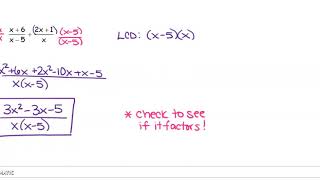 x/x (x+6)/(x-5) + (2x+1)/x (x-5)/(x-5) LCD: (x-5)(x)
x²+6x+2x²-10x+x-5 / x(x-5)
3x²-3x-5 / x(x-5)
* check to see
if it factors!